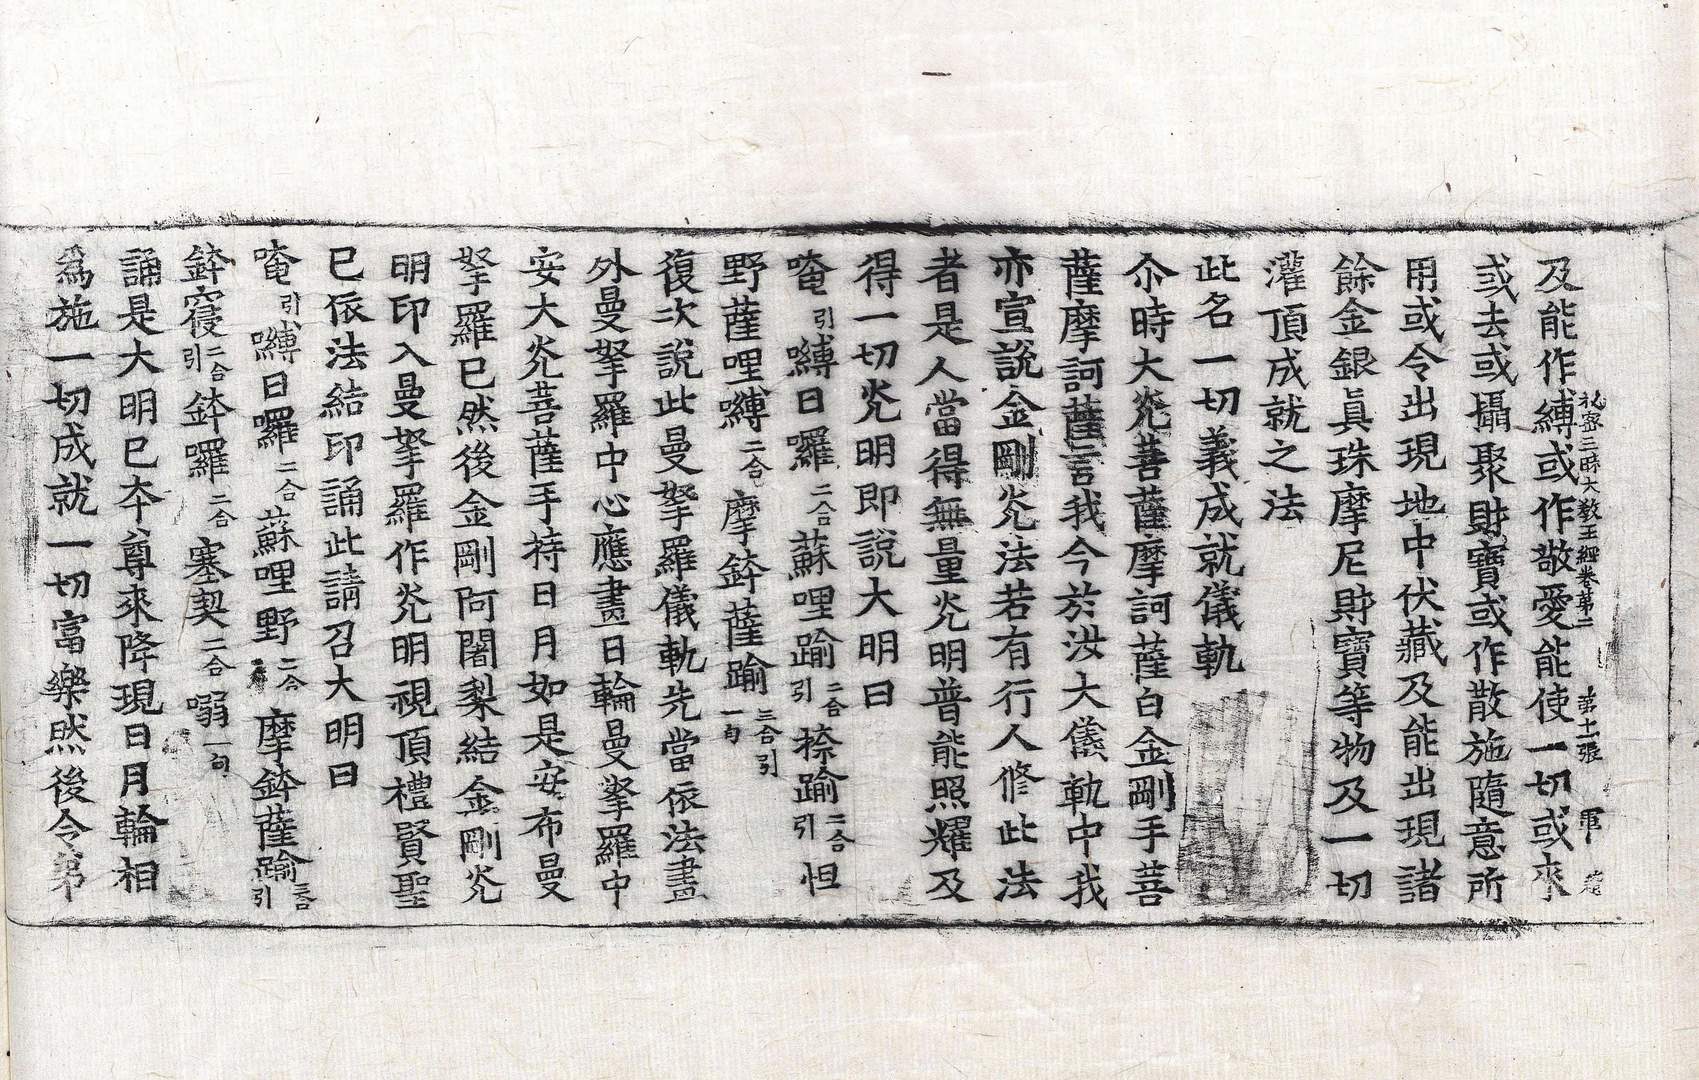 及能作縛或作敬愛能使一切或來
秘密三昧大教王經卷第二 第十一張
或去或攝聚財寶或作散施隨意所
用或令出現地中伏藏及能出現諸
餘金銀眞珠摩尼財寶等物及一切
灌頂成就之法
此名一切義成就儀軌
尒時大炎菩薩摩訶薩白金剛手菩
薩摩訶薩言我今於汝大儀軌中我
亦宣說金剛炎法若有行人修此法
者是人當得無量炎明普能照耀及
得一切炎明即說大明曰
唵引嚩日囉二合蘇哩踰二合引捺踰二合引怛
野薩哩嚩二合摩鉢薩踰三合引一句
復次說此曼拏羅儀軌先當依法畫
外曼拏羅中心應畫日輪曼拏羅中
安大炎菩薩手持日月如是安布曼
拏羅已然後金剛阿闍梨結金剛炎
明印入曼拏羅作炎明視頂禮賢聖
已依法結印誦此請召大明曰
唵引嚩日囉二合蘇哩野二合摩鉢薩踰三合引
鉢寑二合引鉢囉二合塞契二合嗍一句
誦是大明已夲尊來降現日月輪相
爲施一切成就一切富樂然後令第